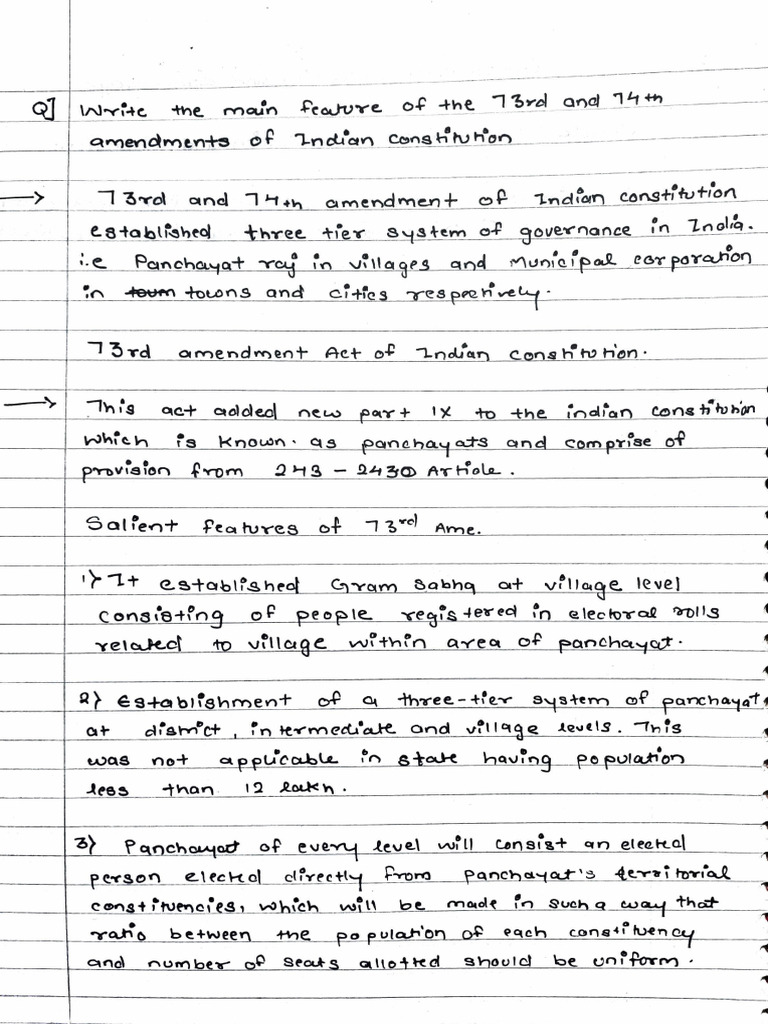 Q] Write the main feature of the 73rd and 74th
amendments of Indian constitution
→ 73rd and 74th amendment of Indian constitution
established three tier system of governance in India.
i.e Panchayat raj in villages and Municipal corporation
in towns and cities respectively.
73rd amendment Act of Indian constitution.
→ This act added new part IX to the indian constitution
which is known. as panchayats and comprise of
provision from 243 - 243O Article.
Salient features of 73rd Ame.
1) It established Gram sabha at village level
consisting of people registered in electoral rolls
related to village within area of panchayat.
2) Establishment of a three-tier system of panchayat
at district, intermediate and village levels. This
was not applicable in state having population
less than 12 lakh.
3) Panchayat of every level will consist an elected
person elected directly from panchayat's territorial
constituencies, which will be made in such a way that
ratio between the population of each constituency
and number of seats allotted should be uniform.